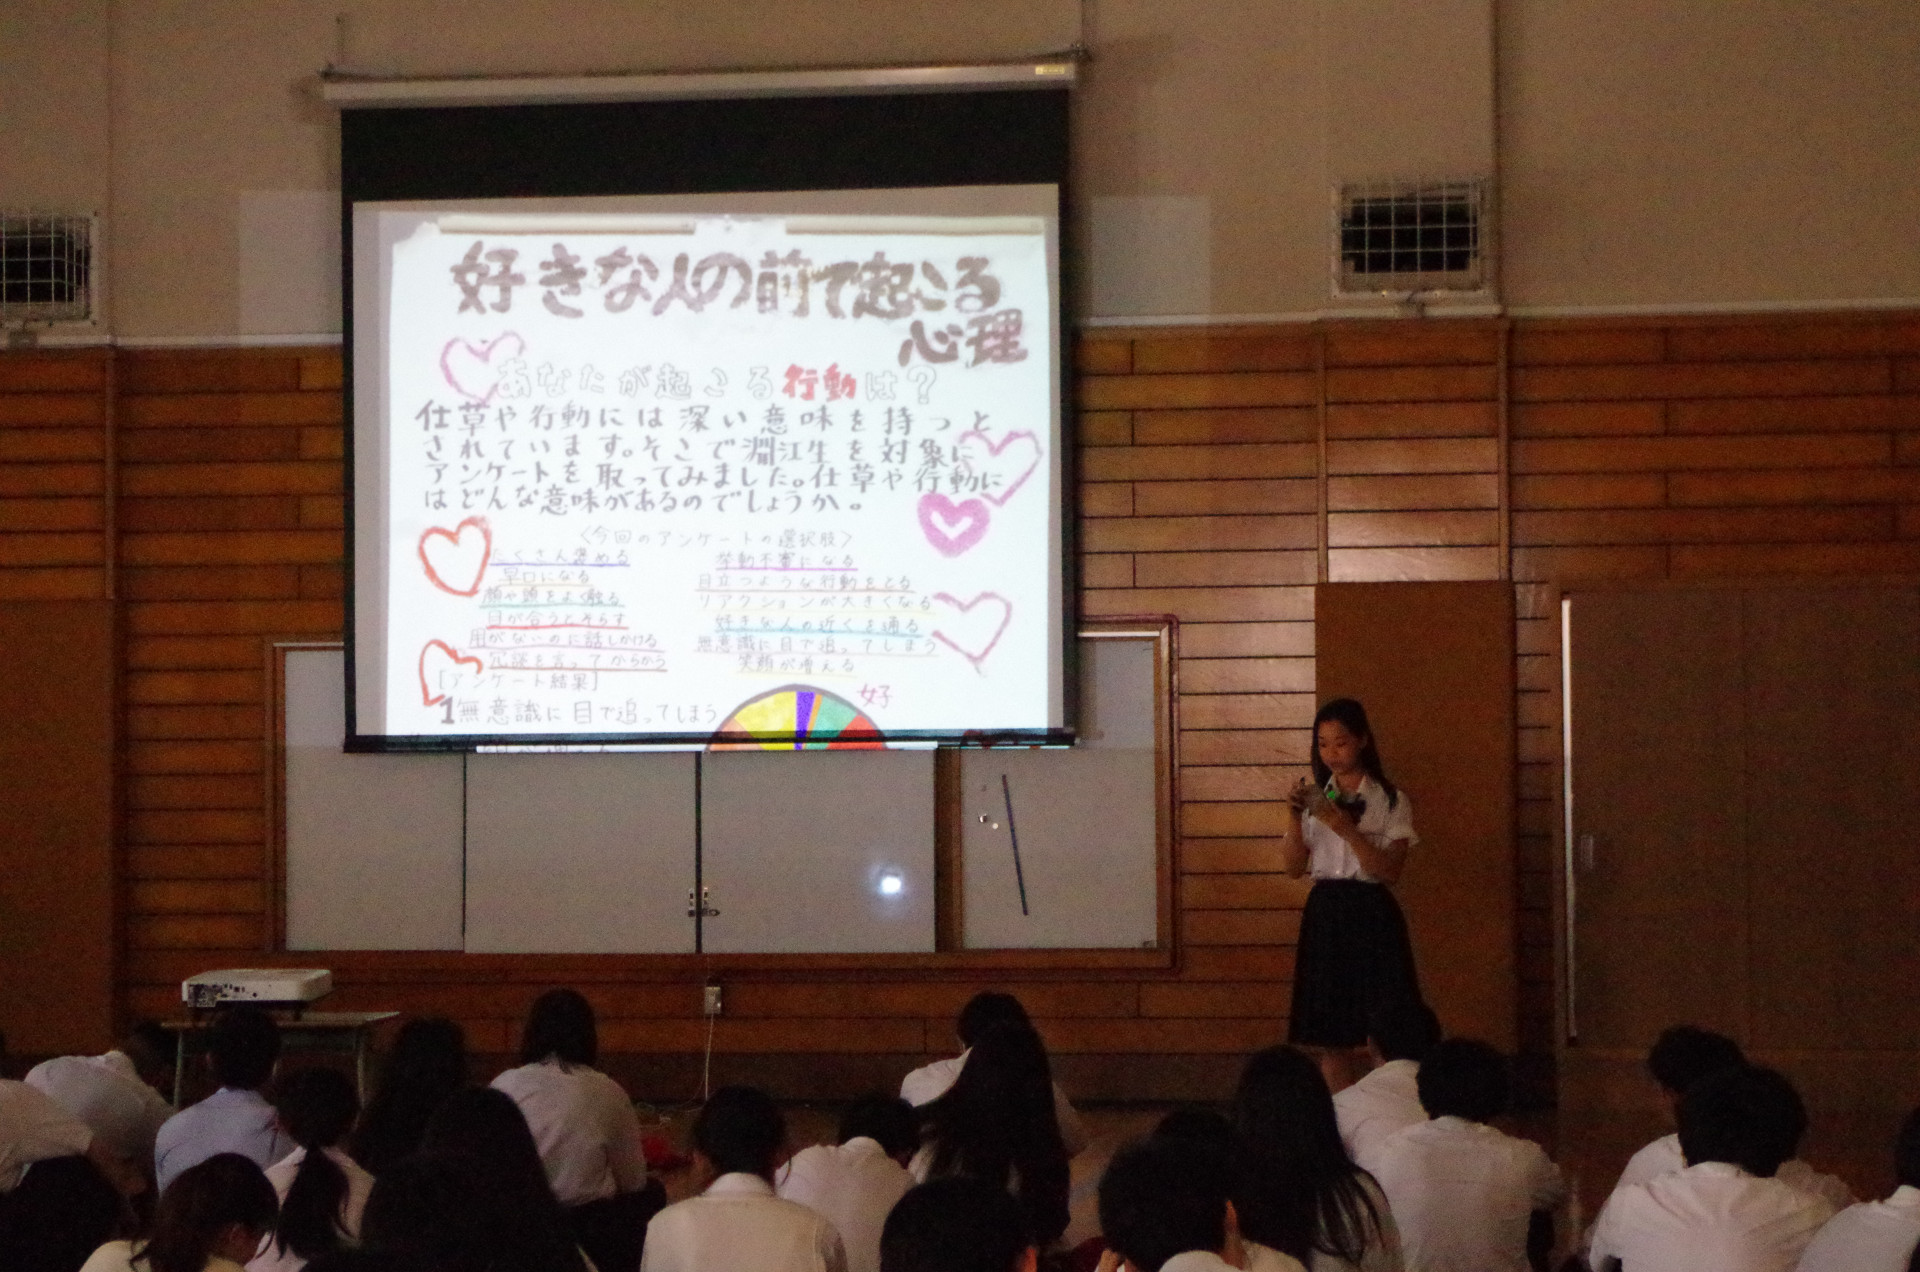 好きな人の前で起こる
心理
あなたが起こる行動は？
仕草や行動には深い意味を持つと
されています。そこで淵江生を対象に
アンケートを取ってみました。仕草や行動に
はどんな意味があるのでしょうか。
〈今回のアンケートの選択肢〉
たくさん褒める
早口になる
顔や頭をよく触る
目が合うとそらす
用がないのに話しかける
冗談を言ってからかう
挙動不審になる
目立つような行動をとる
リアクションが大きくなる
好きな人の近くを通る
無意識に目で追ってしまう
笑顔が増える
[アンケート結果]
1無意識に目で追ってしまう
女子